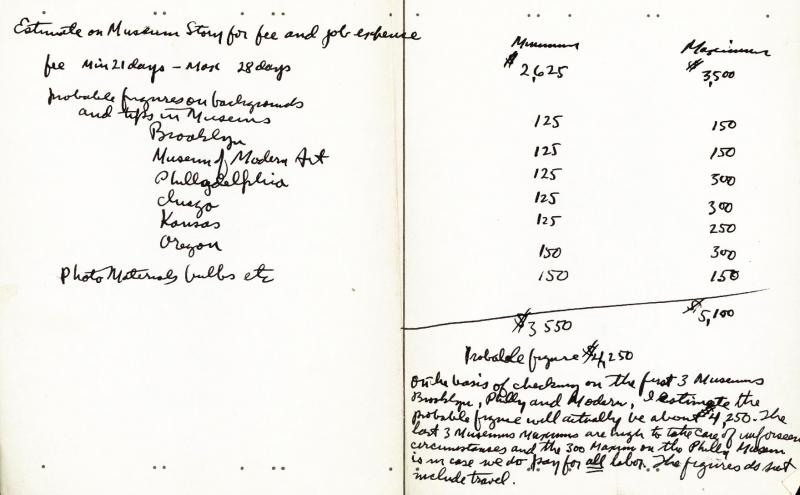 Estimate on Museum Story for fee and job expense
fee Min 21 days – Max 28 days
probable figures on backgrounds
and tips in Museums
Brooklyn
Museum of Modern Art
Philladelphia
Chicago
Kansas
Oregon
Photo Materials bulbs etc
Minimum Maximum
$2,625 $3,500
125 150
125 150
125 300
125 300
125 250
150 300
150 150
$3 550 $5,100
Probable figure $4,250
On the basis of checking on the first 3 Museums
Brooklyn, Philly and Modern, I estimate the
probable figure will actually be about $4,250. The
last 3 Museums Maximums are high to take care of unforseen
circumstances and the 300 Maximum on the Philly Museum
is in case we do pay for all labor. The figures do not
include travel.